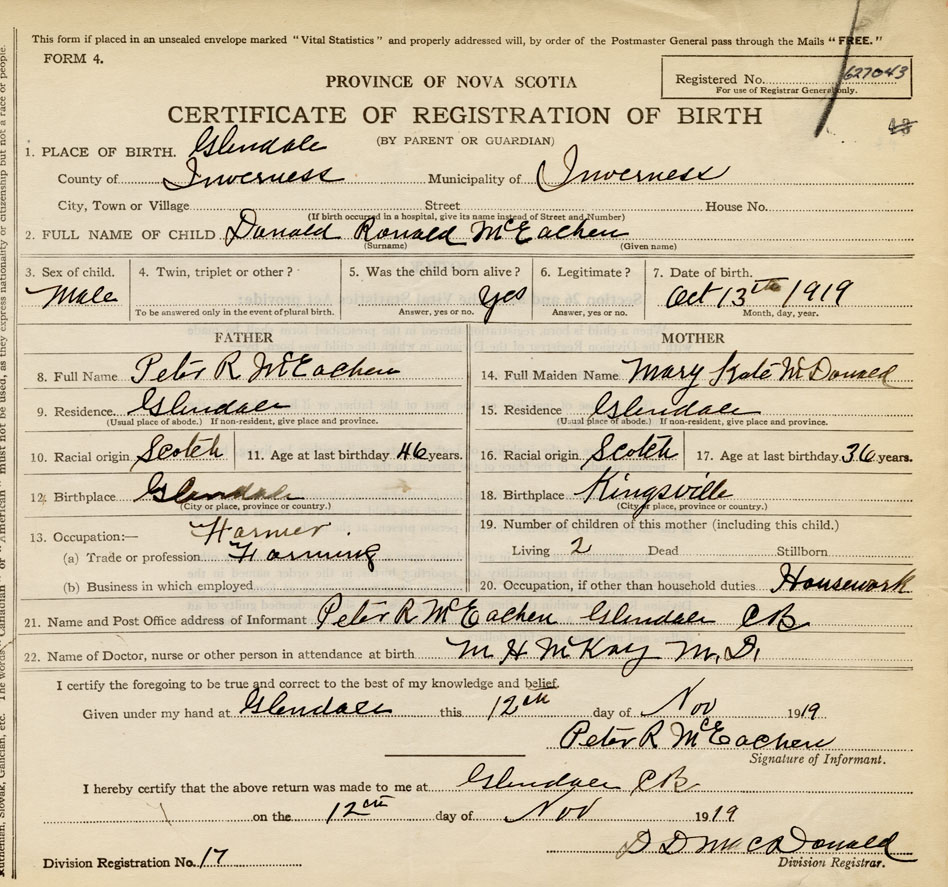 This form if placed in an unsealed envelope marked "Vital Statistics" and properly addressed will, by order of the Postmaster General pass through the Mails "FREE."
FORM 4.
Registered No. 627043
For use of Registrar General only.
PROVINCE OF NOVA SCOTIA
CERTIFICATE OF REGISTRATION OF BIRTH
(BY PARENT OR GUARDIAN)
1. PLACE OF BIRTH. Glendale
County of Inverness Municipality of Inverness
City, Town or Village Street House No.
(If birth occurred in a hospital, give its name instead of Street and Number)
2. FULL NAME OF CHILD Donald Ronald McEachen
(Surname) (Given name)
3. Sex of child. 4. Twin, triplet or other? 5. Was the child born alive? 6. Legitimate? 7. Date of birth.
Male Yes Oct 13th 1919
To be answered only in the event of plural birth. Answer, yes or no. Answer, yes or no. Month, day, year.
FATHER MOTHER
8. Full Name Peter R McEachen 14. Full Maiden Name Mary Kate McDonald
9. Residence. Glendale 15. Residence Glendale
(Usual place of abode.) If non-resident, give place and province. (Usual place of abode.) If non-resident, give place and province.
10. Racial origin Scotch 11. Age at last birthday 46 years. 16. Racial origin Scotch 17. Age at last birthday 36 years.
12. Birthplace Glendale 18. Birthplace Kingsville
(City or place, province or country.) (City or place, province or country.)
13. Occupation:— Farmer 19. Number of children of this mother (including this child.)
(a) Trade or profession Farming Living 2 Dead Stillborn
(b) Business in which employed 20. Occupation, if other than household duties Housework
21. Name and Post Office address of Informant Peter R McEachen Glendale CB
22. Name of Doctor, nurse or other person in attendance at birth M H McKay M.D.
I certify the foregoing to be true and correct to the best of my knowledge and belief.
Given under my hand at Glendale this 12th day of Nov 1919
Peter R McEachen
Signature of Informant.
I hereby certify that the above return was made to me at Glendale CB
on the 12th day of Nov 1919
D D MacDonald
Division Registration No. 17 Division Registrar.